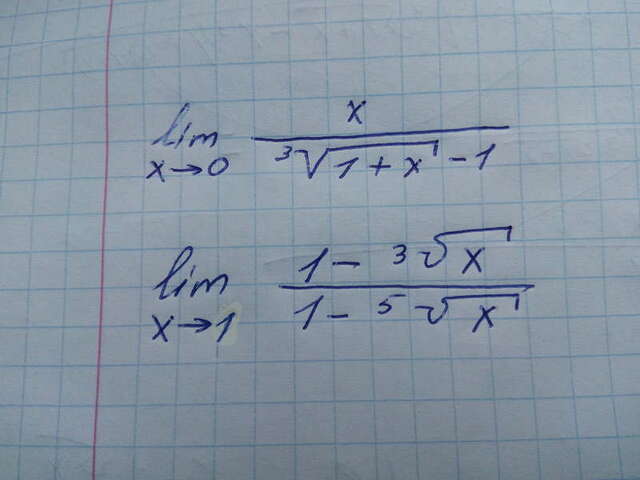 lim x→0 x / ∛(1+x) - 1
lim x→1 1 - ∛x / 1 - ⁵√x